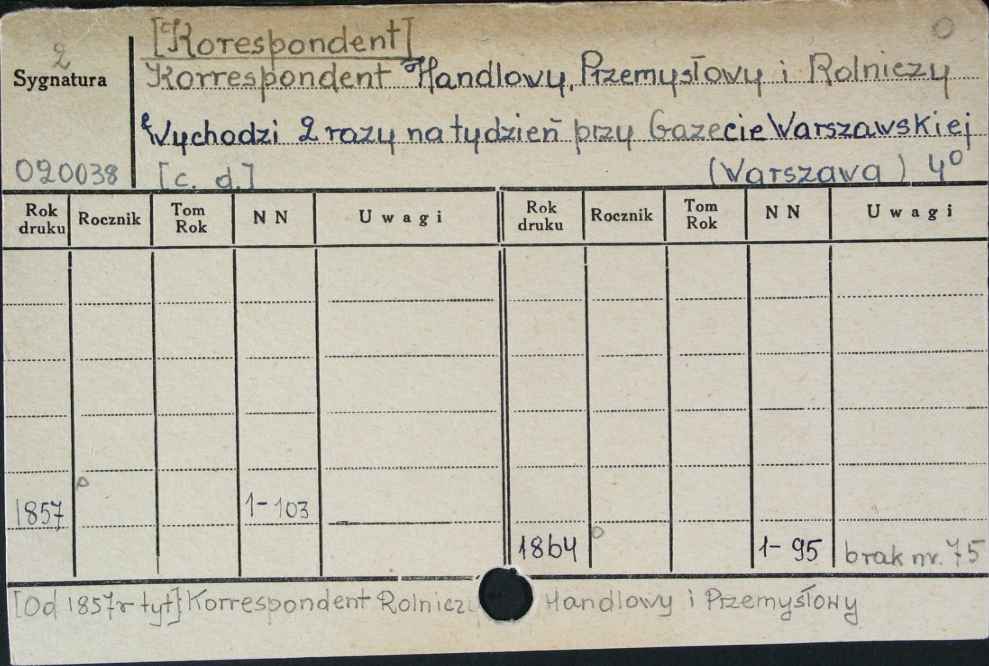 [Korespondent]
2
Sygnatura
Korrespondent Handlowy, Przemysłowy i Rolniczy
Wychodzi 2 razy na tydzień przy Gazecie Warszawskiej
020038
[c. d.] (Warszawa) 4º
Rok druku Rocznik Tom Rok NN Uwagi Rok druku Rocznik Tom Rok NN Uwagi
1857 1-103
1864 1-95 brak nr. 75
[Od 1857r tyt] Korrespondent Handlowy i Przemysłowy